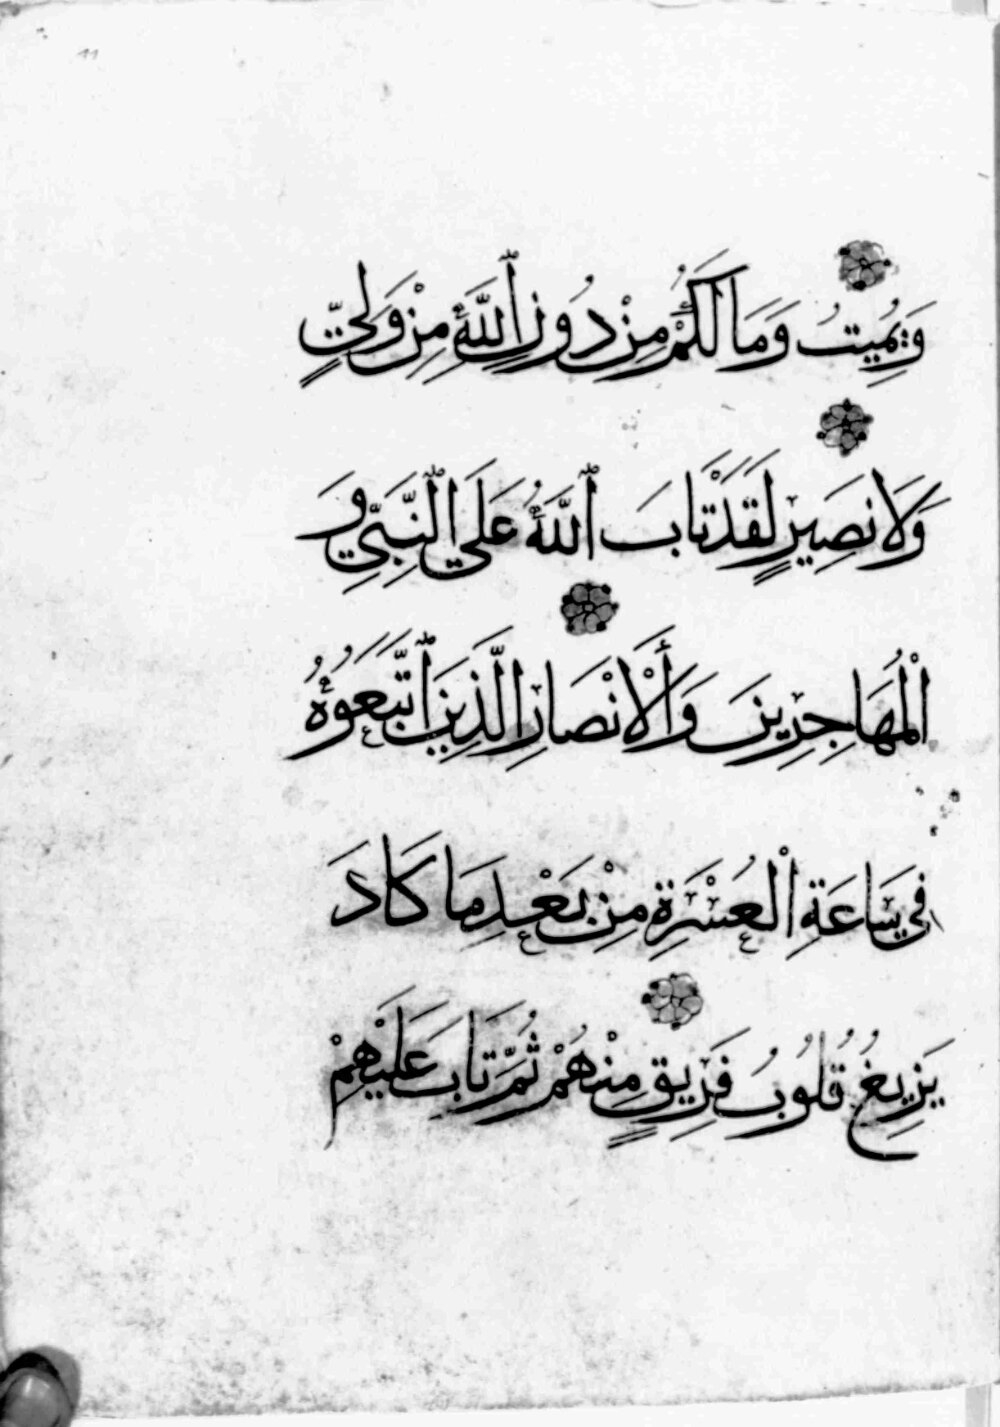 11
وَيُمِيتُ وَمَا لَكُمْ مِنْ دُونِ اللَّهِ مِنْ وَلِيٍّ
وَلَا نَصِيرٍ لَقَدْ تَابَ اللَّهُ عَلَى النَّبِيِّ وَ
الْمُهَاجِرِينَ وَالْأَنْصَارِ الَّذِينَ اتَّبَعُوهُ
فِي سَاعَةِ الْعُسْرَةِ مِنْ بَعْدِ مَا كَادَ
يَزِيغُ قُلُوبُ فَرِيقٍ مِنْهُمْ ثُمَّ تَابَ عَلَيْهِمْ